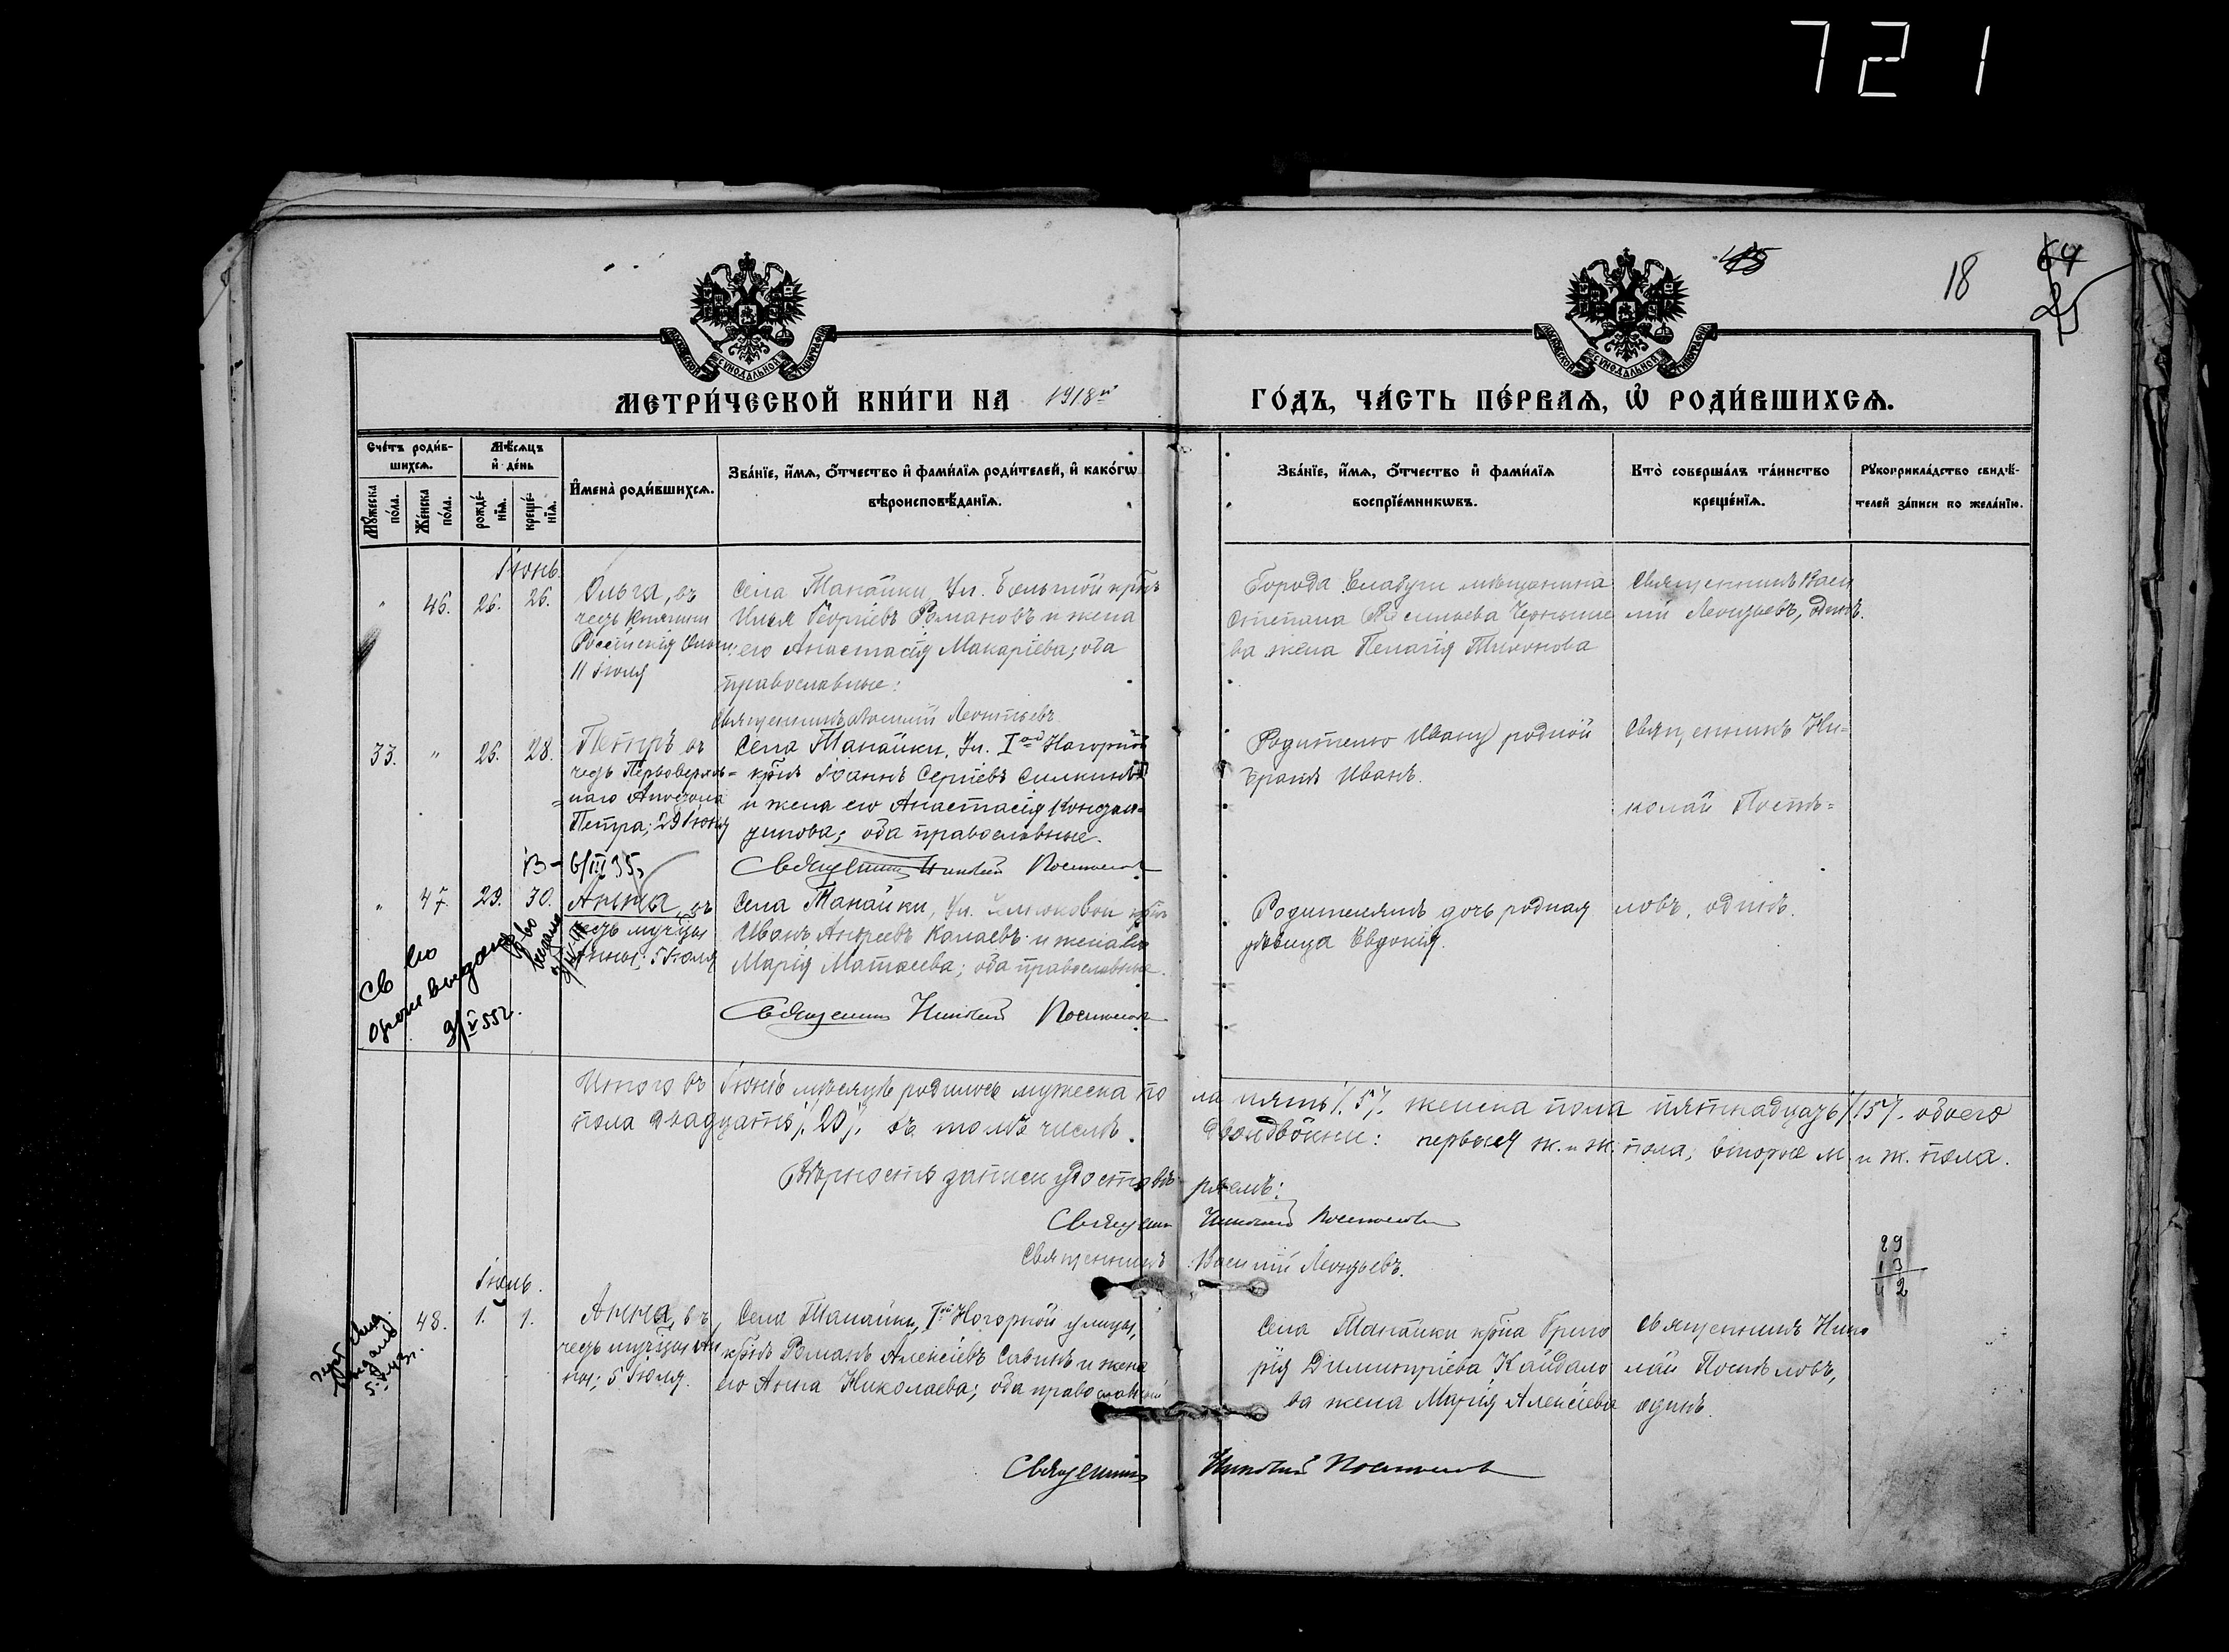 721
18
25
МЕТРИ́ЧЕСКОЙ КНИ́ГИ НА 1918й ГО́ДЪ, ЧА́СТЬ ПЕ́РВАЯ, Ѡ҆ РОДИ́ВШИХСЯ.
Сче́тъ роди́в-
шихся.
Мѣ́сяцъ
и҆ де́нь
Му́жеска по́ла.
Же́нска по́ла.
рожде́-
нїя.
креще́-
нїя.
И҆мена̀ роди́вшихся.
Зва́нїе, и҆́мя, ѻ҆́тчество и҆ фами́лїя роди́телей, и҆ како́гѡ
вѣроисповѣ́данїя.
Зва́нїе, и҆́мя, ѻ҆́тчество и҆ фами́лїя
воспрїе́мникѡвъ.
Кто̀ соверша́лъ та́инство
креще́нїя.
Рꙋкоприкла́дство свидѣ́-
телей за́писи по жела́нїю.
Іюнь.
" 46. 26. 26.
Ольга, въ
честь Княгини
Россійскія Ольги;
11 Іюля
Села Танайки, Ул. Большой крнъ
Илья Георгіевъ Романовъ и жена
его Анастасія Макаріева; оба
православные:
Священникъ Василій Леонтьевъ
Города Елабуги мѣщанина
Степана Васильева Черныше
ва жена Пелагія Тихонова
Священникъ Васи
лій Леонтьевъ, одинъ.
33. " 26. 28.
Петръ въ
честь Первоверхов=
=наго Апостола
Петра; 29 Іюня
Села Танайки, Ул. Iой Нагорной
крнъ Іоаннъ Сергіевъ Силкинъ
и жена его Анастасія
оба православные.
Священникъ Николай Поспѣловъ
Родителю Ивану родной
братъ Иванъ.
Священникъ Ни=
колай Поспѣ=
ловъ, одинъ.
6/III 35
" 47. 29. 30.
Анна, въ
честь мучцы
Анны; 5 Іюля
Села Танайки, Ул.
Иванъ Андреевъ Калаевъ и жена его
Марія Матвеева; оба православные.
Священникъ Николай Поспѣловъ
Родителямъ дочь родная
дѣвица Евдокія.
Св во
выдано
3/V 55г.
Итого въ Іюнѣ мѣсяцѣ родилось мужеска по ла пять /.5/. женска пола пятнадцать /.15/. обоего
пола двадцать /.20/. въ томъ числѣ. Двои двойни: первыя ж. и ж. пола; вторые м. и ж. пола.
Вѣрность записи удостовѣ ряемъ:
Священникъ Николай Поспѣловъ
Священникъ Василій Леонтьевъ.
29
13
42
Іюль.
48. 1. 1.
Анна, въ
честь мучцы Ан
ны; 5 Іюля.
Села Танайки, Iой Нагорной улицы,
крнъ Романъ Алексіевъ Савинъ и жена
его Анна Николаева; оба православные
Села Танайки крна Григо
рія Димитріева Кайдало
ва жена Марія Алексіева
Священникъ Нико
лай Поспѣловъ,
одинъ.
Священникъ Николай Поспѣловъ